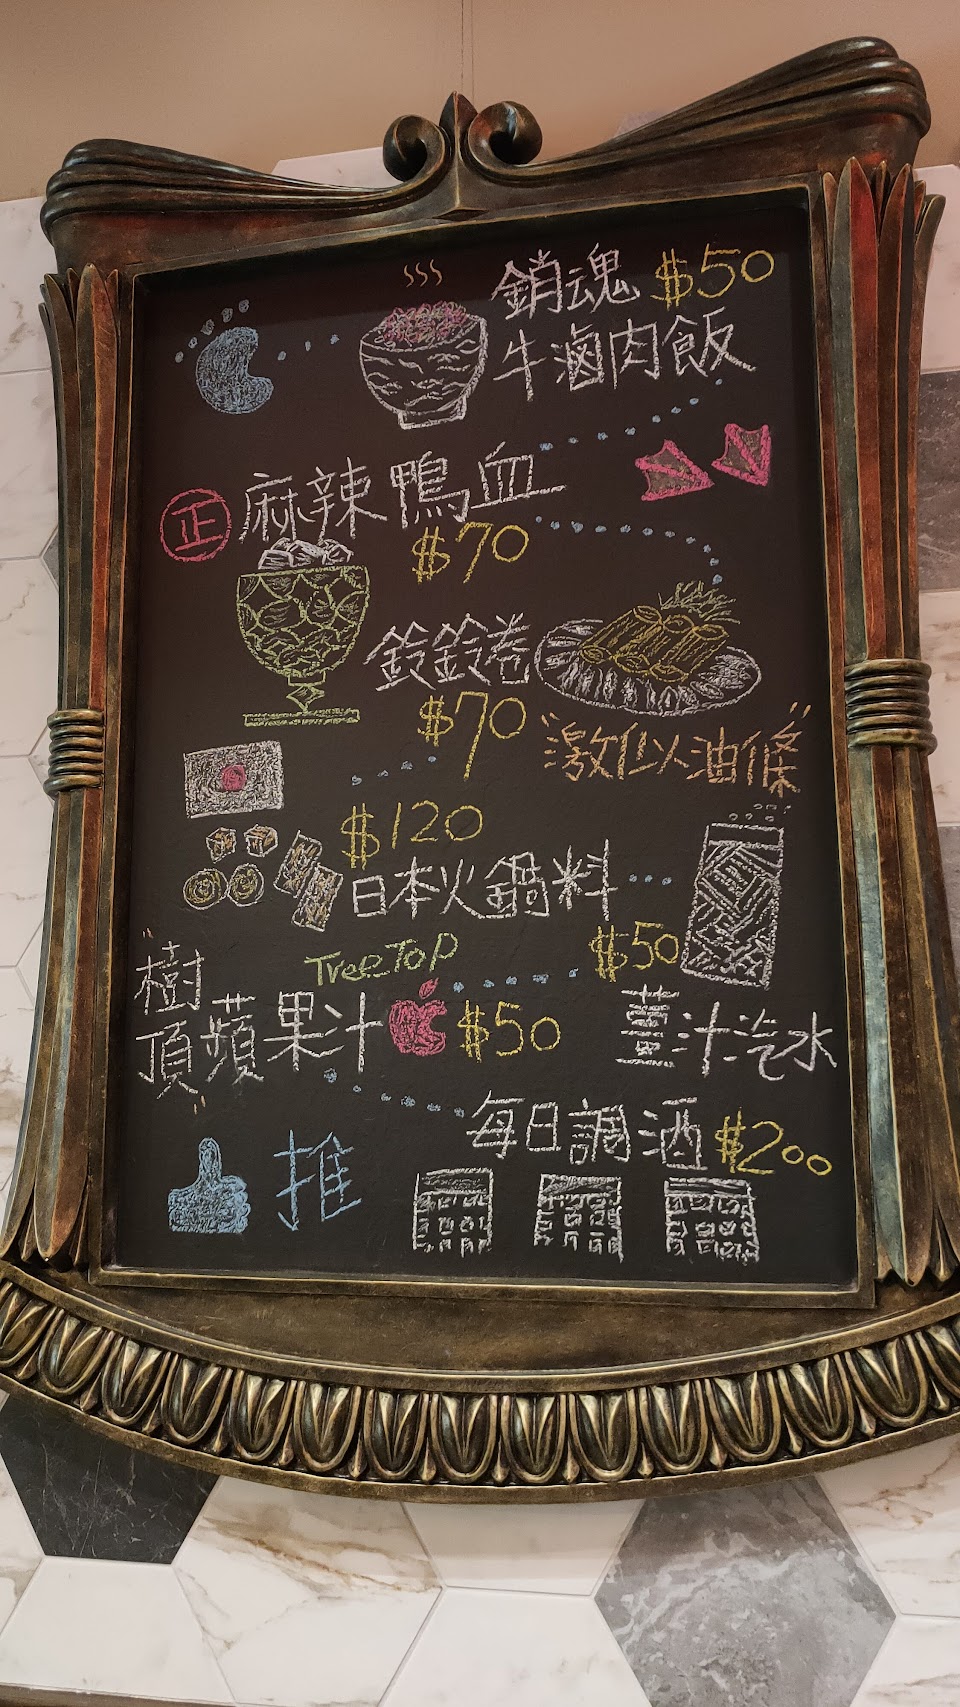 銷魂 $50
牛滷肉飯
正 麻辣鴨血
$70
鈴鈴卷
$70
"激似油條"
$120
日本火鍋料
TreeTop
"樹
頂蘋果汁 $50
"
$50
薑汁汽水
每日調酒 $200
推